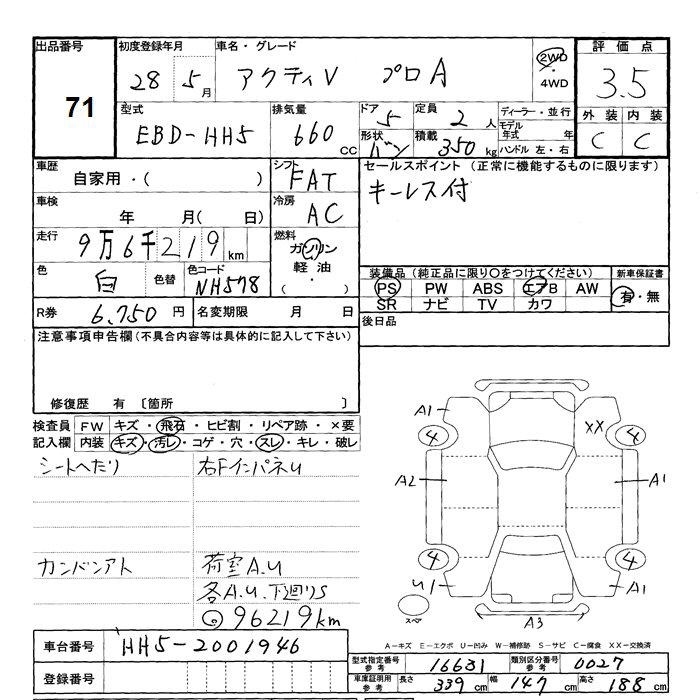 出品番号
71
初度登録年月
28 5月
車名・グレード
アクティV プロA
2WD
・
4WD
評価点
3.5
型式
EBD-HH5
排気量
660cc
ドア 5
定員 2人
形状 バン
積載 350kg
ディーラー・並行
モデル年式 年
ハンドル 左・右
外装 内装
C C
車歴
自家用・( )
シフト
FAT
セールスポイント(正常に機能するものに限ります)
キーレス付
車検
年 月( 日)
冷房
AC
走行
9万6千219km
燃料
ガソリン
軽油
・
( )
色
白
色替
色コード
NH578
装備品(純正品に限り○をつけてください)
PS PW ABS エアB AW
SR ナビ TV カワ
新車保証書
有・無
R券 6,750円
名変期限 月 日
後日品
注意事項申告欄(不具合内容等は具体的に記入して下さい)
修復歴 有 〔箇所 〕
検査員記入欄
FW キズ・飛石・ヒビ割・リペア跡・×要
内装 キズ・汚レ・コゲ・穴・スレ・キレ・破レ
シートへたり
右FインパネU
カンバンアト
荷室A.U
各A.U.下廻りS
96219km
A1
XX
4
4
A2
A1
4
4
U1
A1
スペア
A3
A-キズ E-エクボ U-凹み W-補修跡 S-サビ C-腐食 XX-交換済
車台番号
HH5-2001946
登録番号
型式指定番号参考
16631
類別区分番号参考
0027
車庫証明用参考
長さ 339cm
幅 147cm
高さ 188cm